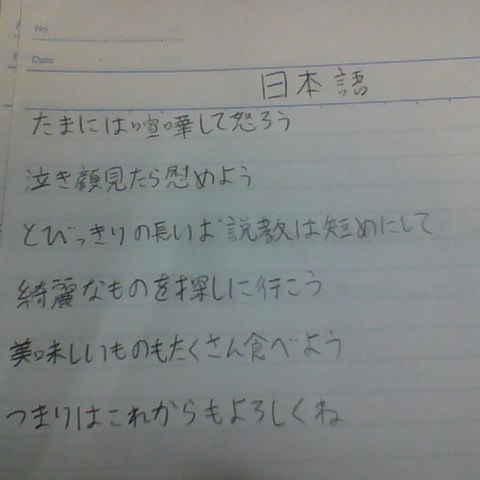 No.
Date
日本語
たまには喧嘩して怒ろう
泣き顔見たら慰めよう
とびっきりの長いお説教は短めにして
綺麗なものを探しに行こう
美味しいものもたくさん食べよう
つまりはこれからもよろしくね